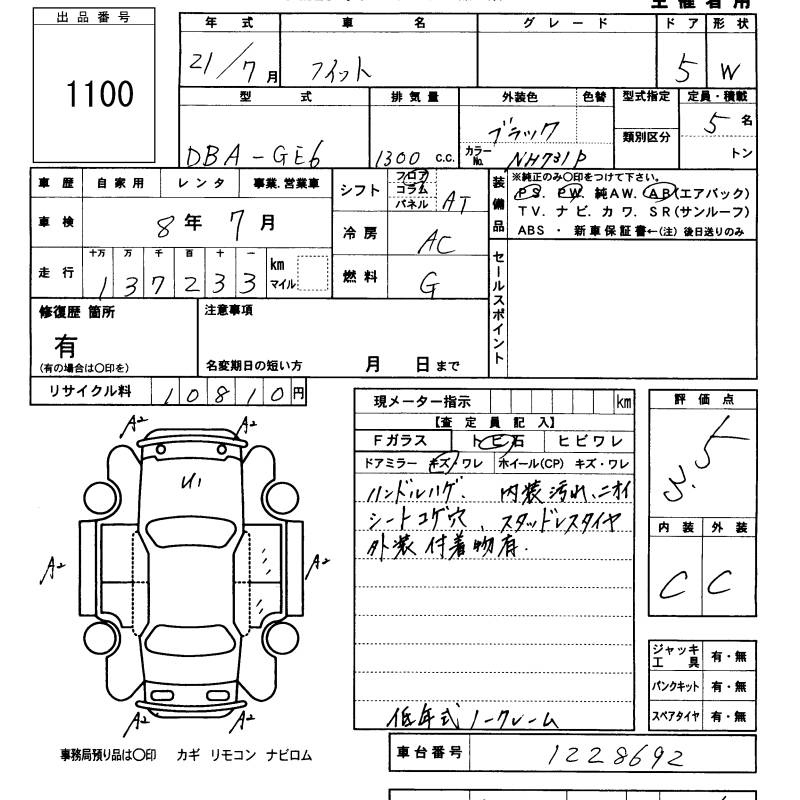 主催者用
出品番号
1100
年式 車名 グレード ドア 形状
21/7月 フィット 5 W
型式 排気量 外装色 色替 型式指定 定員・積載
DBA-GE6 1300 c.c. ブラック 類別区分 5名
カラーNo. NH731P トン
車歴 自家用 レンタ 事業.営業車
シフト フロア コラム パネル AT
装備品 ※純正のみ〇印をつけて下さい。
PS. PW. 純AW. AB(エアバック)
TV. ナビ. カワ. SR(サンルーフ)
ABS ・ 新車保証書←(注) 後日送りのみ
車検 8年 7月
冷房 AC
走行 十万 万 千 百 十 一 km マイル
137233
燃料 G
セールスポイント
修復歴 箇所 注意事項
有
(有の場合は〇印を) 名変期日の短い方 月 日まで
リサイクル料 10810円
現メーター指示 km
【査定員記入】
Fガラス トビ石 ヒビワレ
ドアミラー キズ・ワレ ホイール(CP) キズ・ワレ
ハンドルハゲ. 内装汚れ、ニオイ
シートコゲ穴、スタッドレスタイヤ
外装付着物有.
低年式ノークレーム
評価点
3.5
内装 外装
C C
A2 A2
A2 A2
A2 A2
ジャッキ工具 有・無
パンクキット 有・無
スペアタイヤ 有・無
事務局預り品は〇印 カギ リモコン ナビロム
車台番号 1228692